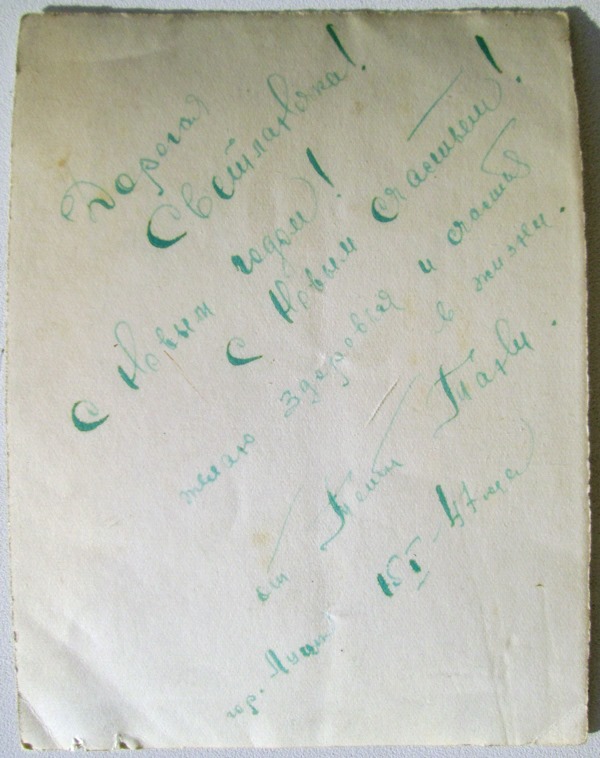 Дорогая
Светланочка!
С Новым годом!
С Новым счастьем!
желаю здоровья и счастья
в жизни.
от тёти Тани.
гор. 15 I - 47 года